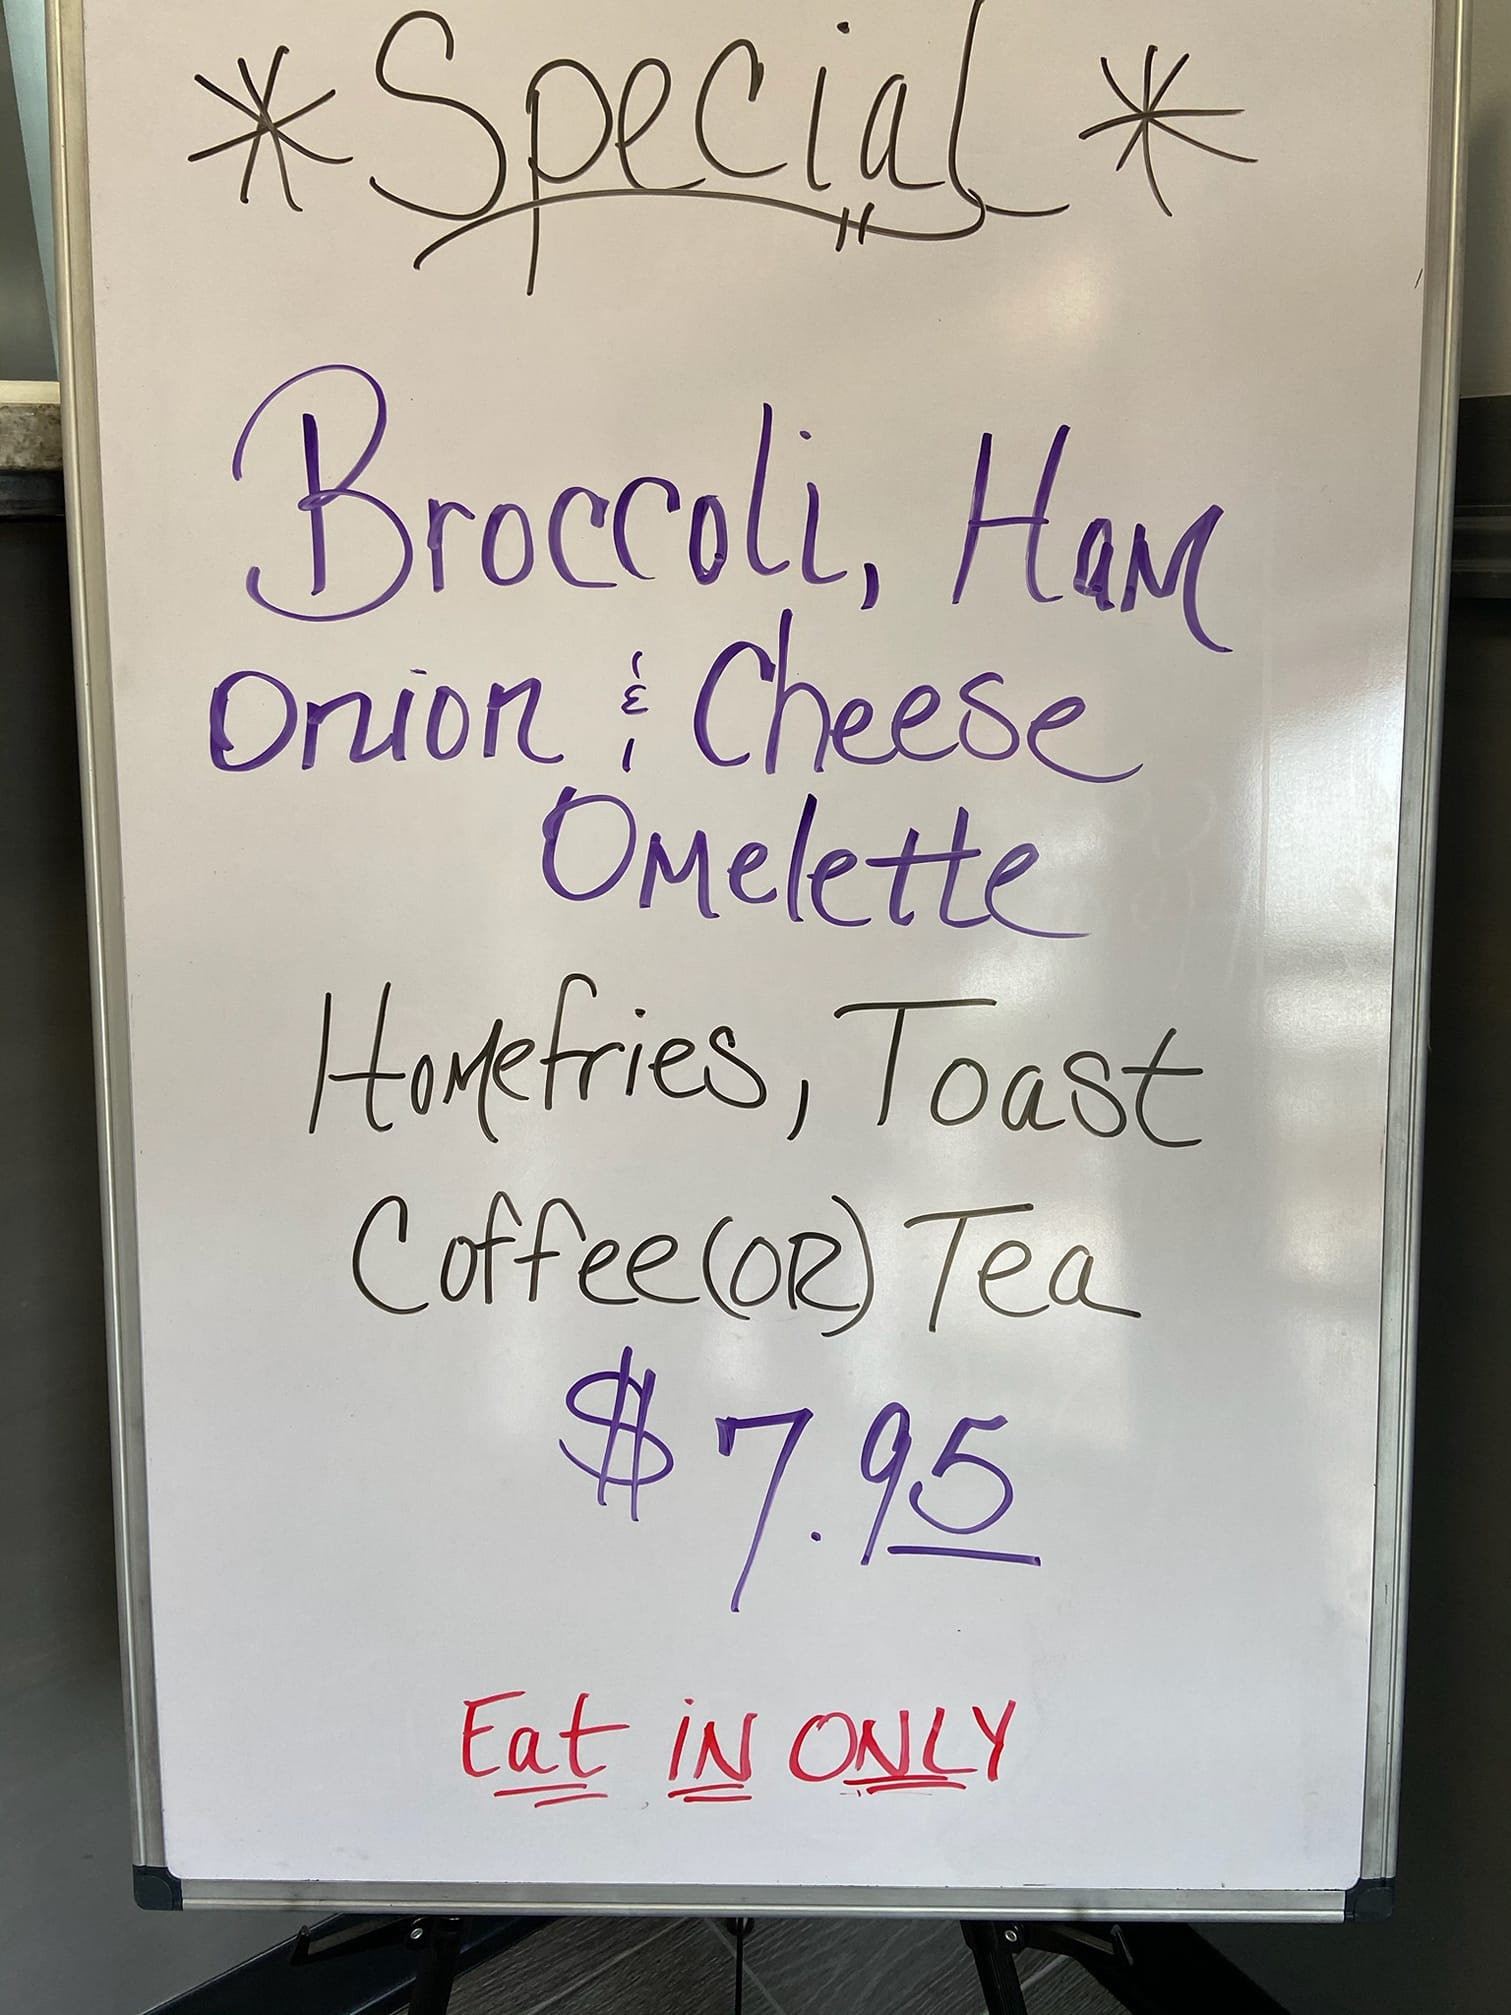 * Special *
Broccoli, Ham
Onion & Cheese
Omelette
Homefries, Toast
Coffee (OR) Tea
$7.95
Eat iN ONLY